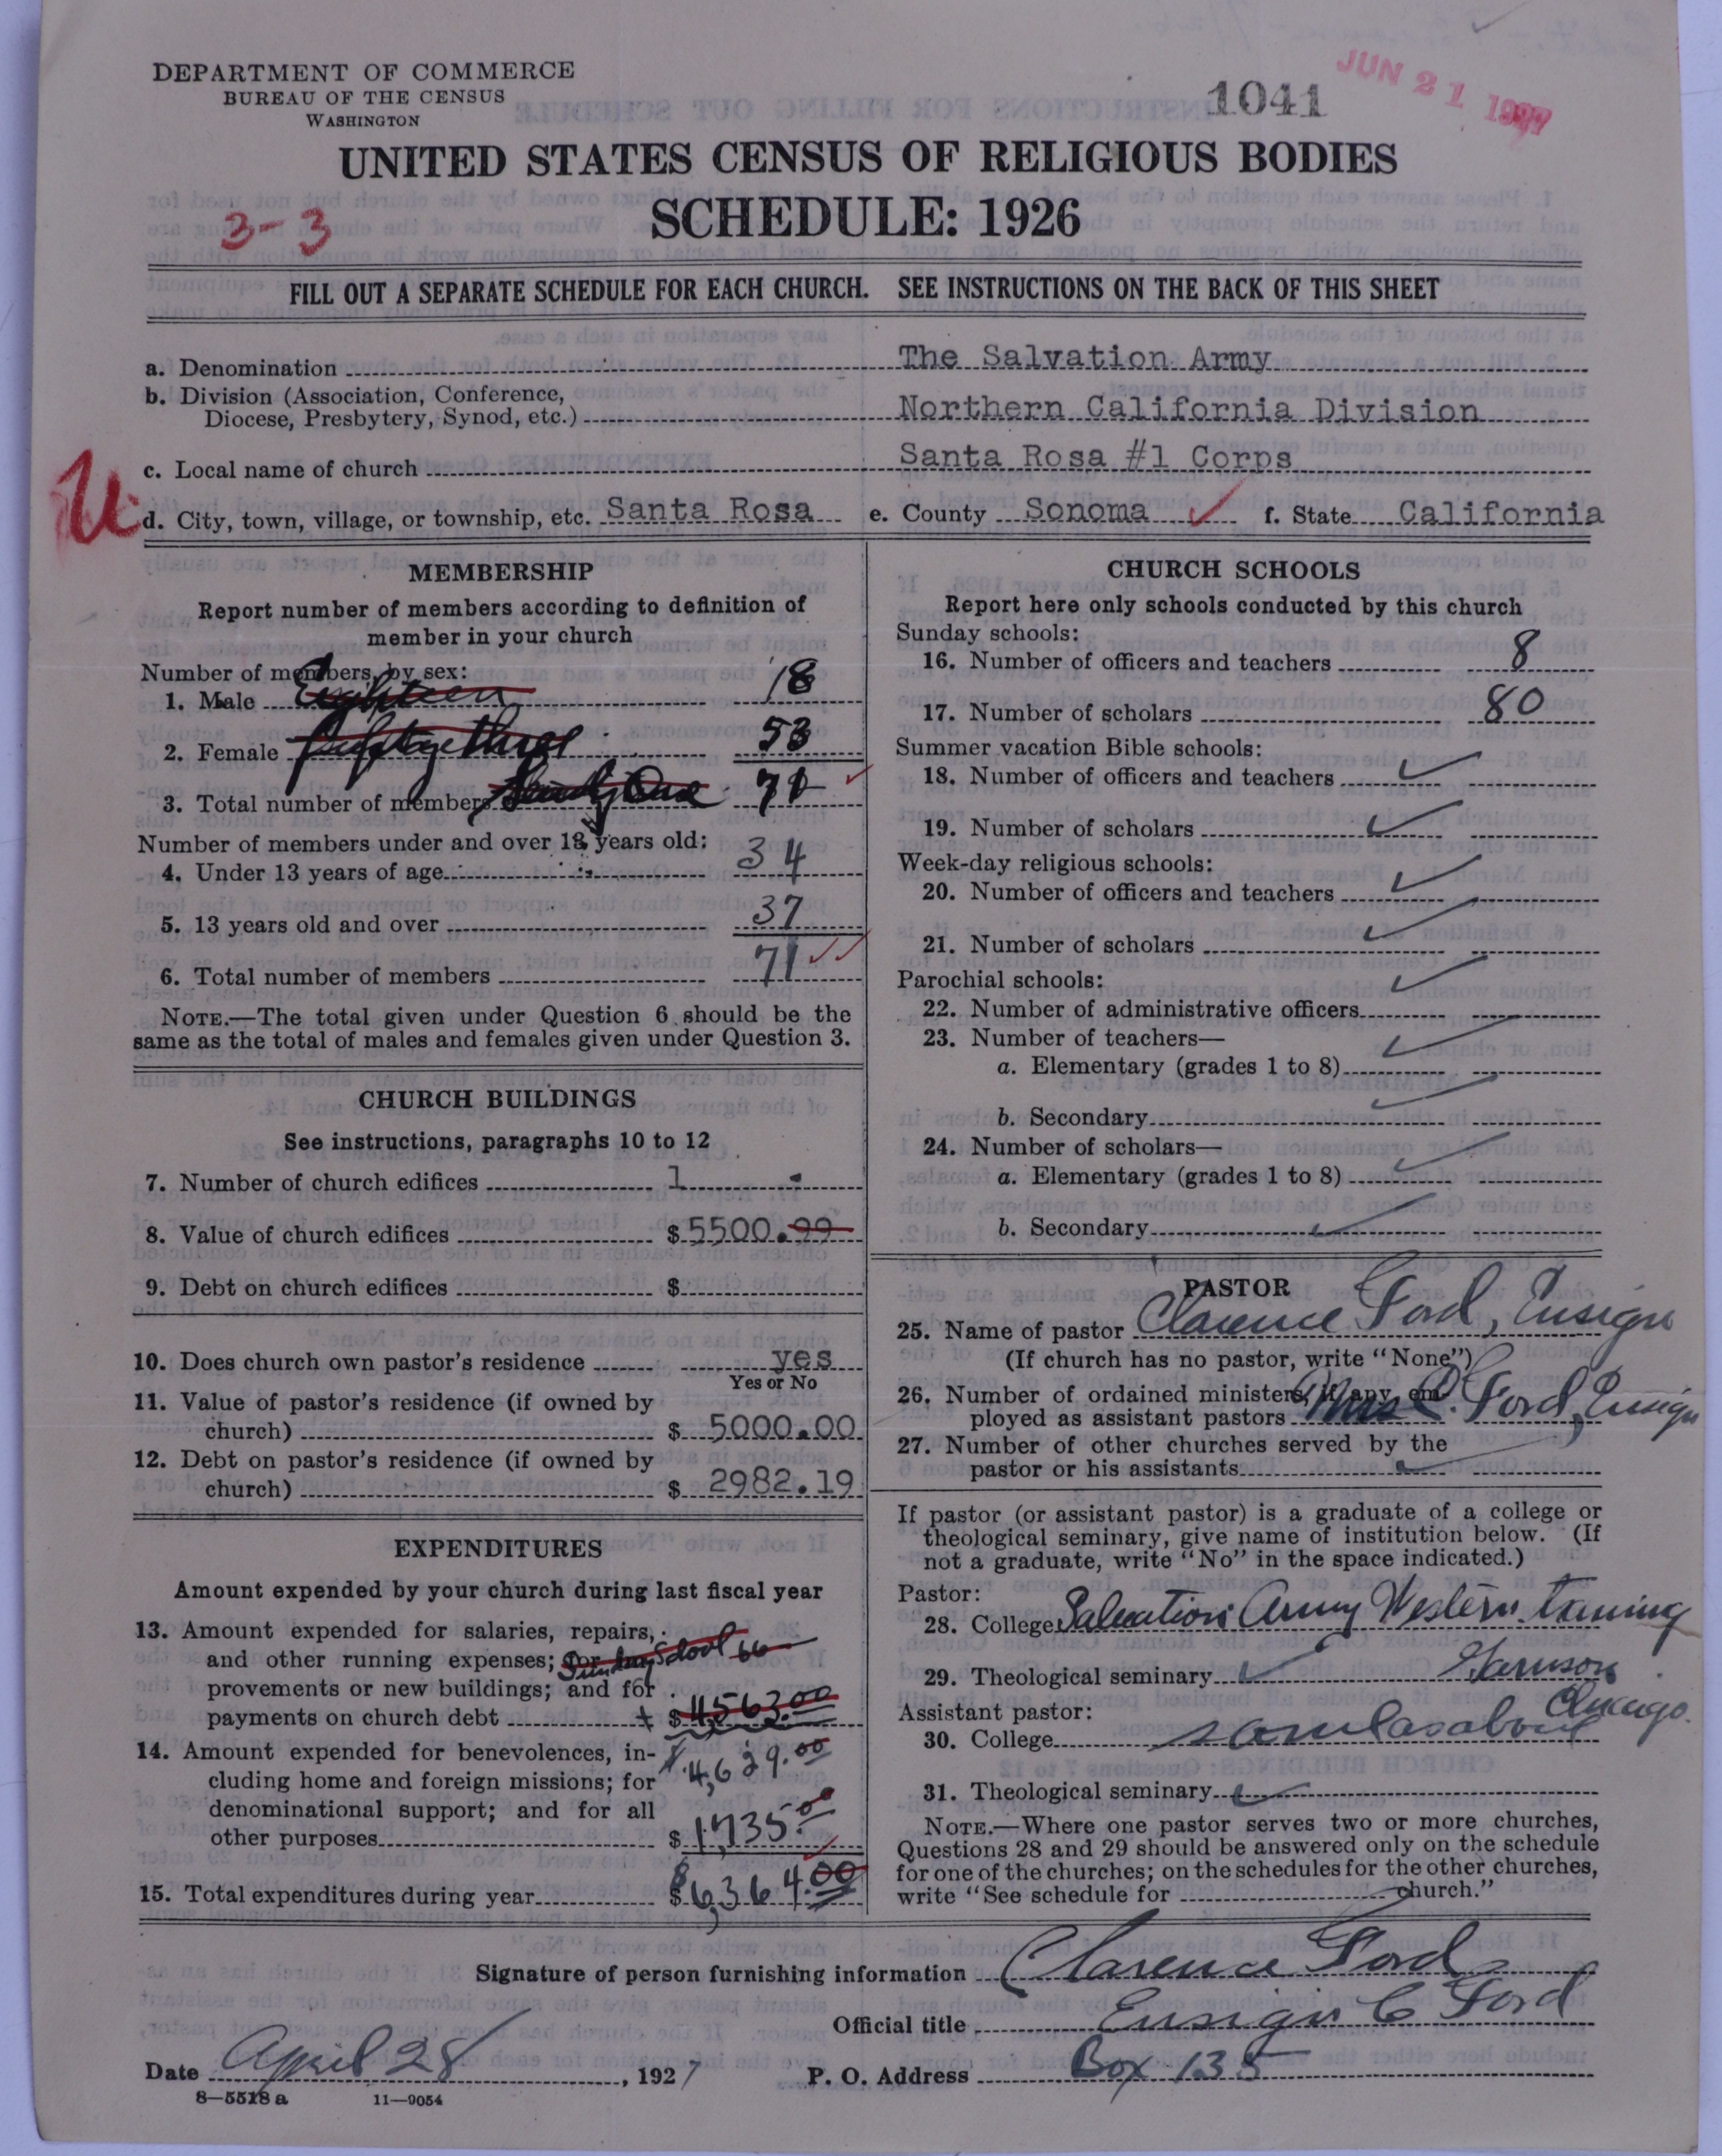 DEPARTMENT OF COMMERCE
BUREAU OF THE CENSUS
WASHINGTON
1041
JUN 21 1927
UNITED STATES CENSUS OF RELIGIOUS BODIES
SCHEDULE: 1926
3-3
FILL OUT A SEPARATE SCHEDULE FOR EACH CHURCH. SEE INSTRUCTIONS ON THE BACK OF THIS SHEET
a. Denomination The Salvation Army
b. Division (Association, Conference,
Diocese, Presbytery, Synod, etc.) Northern California Division
c. Local name of church Santa Rosa #1 Corps
U
d. City, town, village, or township, etc. Santa Rosa e. County Sonoma f. State California
MEMBERSHIP
Report number of members according to definition of
member in your church
Number of members, by sex:
1. Male Eighteen 18
2. Female fifty three 53
3. Total number of members Seventy One 71
Number of members under and over 13 years old:
4. Under 13 years of age 34
5. 13 years old and over 37
6. Total number of members 71
NOTE.—The total given under Question 6 should be the
same as the total of males and females given under Question 3.
CHURCH BUILDINGS
See instructions, paragraphs 10 to 12
7. Number of church edifices 1
8. Value of church edifices $ 5500.99
9. Debt on church edifices $
10. Does church own pastor's residence yes
Yes or No
11. Value of pastor's residence (if owned by
church) $ 5000.00
12. Debt on pastor's residence (if owned by
church) $ 2982.19
EXPENDITURES
Amount expended by your church during last fiscal year
13. Amount expended for salaries, repairs,
and other running expenses; for Sunday School 66
provements or new buildings; and for
payments on church debt $ 4,563.00
14. Amount expended for benevolences, in- 4,629.00
cluding home and foreign missions; for
denominational support; and for all
other purposes $ 1,735.00
15. Total expenditures during year $ 6,364.00
CHURCH SCHOOLS
Report here only schools conducted by this church
Sunday schools:
16. Number of officers and teachers 8
17. Number of scholars 80
Summer vacation Bible schools:
18. Number of officers and teachers
19. Number of scholars
Week-day religious schools:
20. Number of officers and teachers
21. Number of scholars
Parochial schools:
22. Number of administrative officers
23. Number of teachers—
a. Elementary (grades 1 to 8)
b. Secondary
24. Number of scholars—
a. Elementary (grades 1 to 8)
b. Secondary
PASTOR
25. Name of pastor Clarence Ford, Ensign
(If church has no pastor, write "None")
26. Number of ordained ministers, if any, em-
ployed as assistant pastors Mrs C. Ford, Ensign
27. Number of other churches served by the
pastor or his assistants
If pastor (or assistant pastor) is a graduate of a college or
theological seminary, give name of institution below. (If
not a graduate, write "No" in the space indicated.)
Pastor:
28. College Salvation Army Western Traning
29. Theological seminary Garrison
Assistant pastor: Chicago.
30. College same as above
31. Theological seminary
NOTE.—Where one pastor serves two or more churches,
Questions 28 and 29 should be answered only on the schedule
for one of the churches; on the schedules for the other churches,
write "See schedule for church."
Signature of person furnishing information Clarence Ford
Official title Ensign C Ford
Date April 28, 1927 P. O. Address Box 135
8—5518 a 11—9054